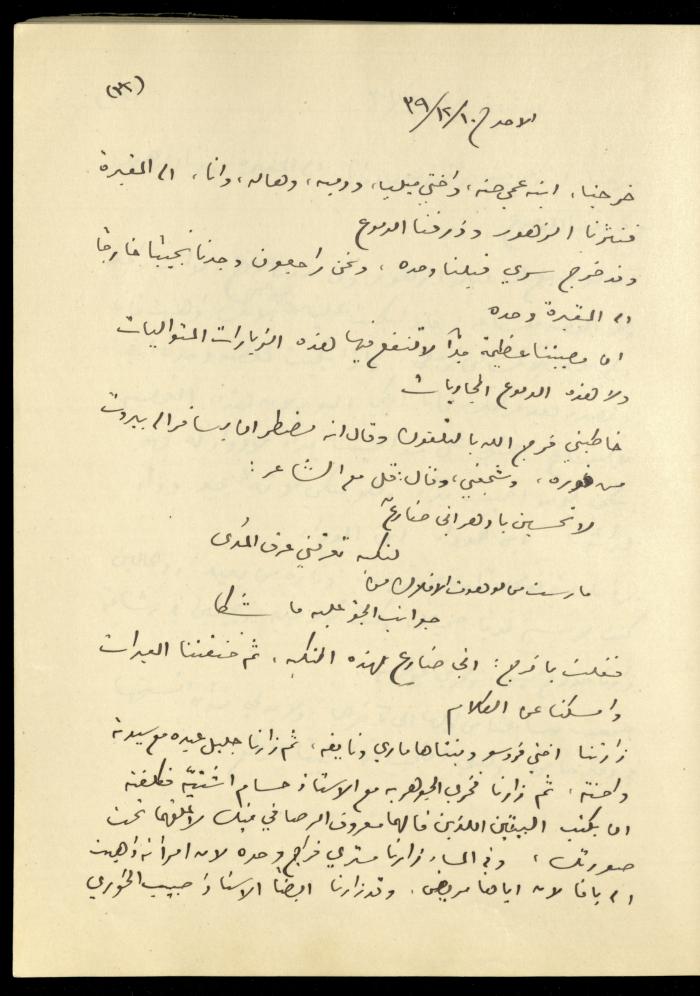 (٣٢)
الاحد في ٣٩/١٢/١٠
خرجنا، ابنة عمي حنه، واختي ميليا، ودميه، وهاله، وانا، الى المقبرة
فنثرنا الزهور وذرفنا الدموع
وقد خرج سري قبلنا وحده، ونحن راجعون وجدنا نجيبا خارجا
الى المقبرة وحده
ان مصيبتنا عظيمة جداً لا تنفع فيها هذه الزيارات المتواليات
ولا هذه الدموع الجاريات
خاطبني فرج الله بالتلفون وقال انه مضطر ان يسافر الى بيروت
من فوره، وشجعني، وقال: قل مع الشاعر:
لا تحسبن يا دهر اني ضارع
لنكبه تعرقني عرق المدى
مارست من لو هوت الافلاك من
جوانب الجو عليه ما شكا
فقلت يا فرج: اني ضارع لهذه النكبه، ثم خنقتنا العبرات
وامسكنا عن الكلام
زارتنا اختي فروسو وبنتاها ماري ونايفه، ثم زارنا جليل عبده مع سيدته
واخته، ثم زارنا فخري الجوهريه مع الاستاذ حسام فكلفته
ان يكتب البيتين اللذين قالهما معروف الرصافي فيك لاعلقهما تحت
صورتك، وفي المساء زارنا متري فراج وحده لان امرأته ذاهبت
الى يافا لان اباها مريض. وقد زارنا ايضاً الاستاذ حبيب الخوري